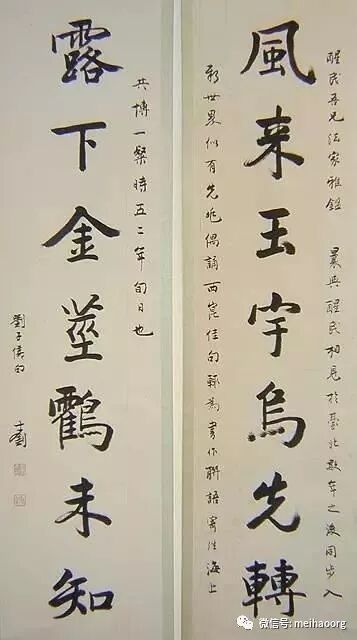 醒民吾兄法家雅鑑 曩與醒民初見於臺北數年之後同步入
風来玉宇烏先轉
新世界似有先兆偶誦西崑佳句輒為書作聯語寄往海上
共博一粲時五二年旬日也
露下金莖鸖未知
微信号: meihaoorg